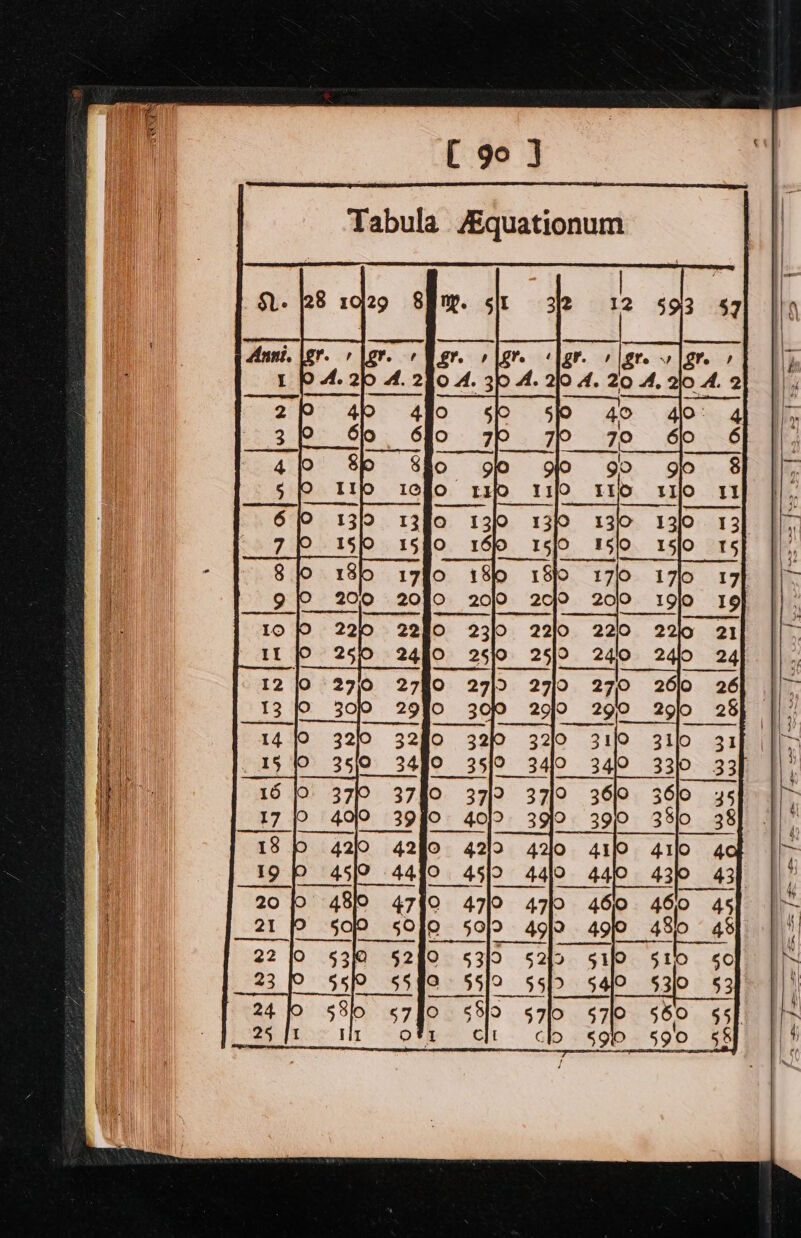 [ 90 ]
Tabula Æquationum
♌. 28 10 29 8 ♍. 5 1 3 2 12 59 3 57
Anni. gr. ′ gr. ′ gr. ′ gr. ′ gr. ′ gr. ′ gr. ′
1 0 A. 2 0 A. 2 0 A. 3 0 A. 2 0 A. 2 0 A. 2 0 A. 2
2 0 4 0 4 0 5 0 5 0 4 0 4 0 4
3 0 6 0 6 0 7 0 7 0 7 0 6 0 6
4 0 8 0 8 0 9 0 9 0 9 0 9 0 8
5 0 11 0 10 0 11 0 11 0 11 0 11 0 11
6 0 13 0 13 0 13 0 13 0 13 0 13 0 13
7 0 15 0 15 0 16 0 15 0 15 0 15 0 15
8 0 18 0 17 0 18 0 18 0 17 0 17 0 17
9 0 20 0 20 0 20 0 20 0 20 0 19 0 19
10 0 22 0 22 0 23 0 22 0 22 0 22 0 21
11 0 25 0 24 0 25 0 25 0 24 0 24 0 24
12 0 27 0 27 0 27 0 27 0 27 0 26 0 26
13 0 30 0 29 0 30 0 29 0 29 0 29 0 28
14 0 32 0 32 0 32 0 32 0 31 0 31 0 31
15 0 35 0 34 0 35 0 34 0 34 0 33 0 33
16 0 37 0 37 0 37 0 37 0 36 0 36 0 35
17 0 40 0 39 0 40 0 39 0 39 0 38 0 38
18 0 42 0 42 0 42 0 42 0 41 0 41 0 40
19 0 45 0 44 0 45 0 44 0 44 0 43 0 43
20 0 48 0 47 0 47 0 47 0 46 0 46 0 45
21 0 50 0 50 0 50 0 49 0 49 0 48 0 48
22 0 53 0 52 0 53 0 52 0 51 0 51 0 50
23 0 55 0 55 0 55 0 55 0 54 0 53 0 53
24 0 58 0 57 0 58 0 57 0 57 0 56 0 55
25 1 1 1 0 1 0 1 0 0 59 0 59 0 58